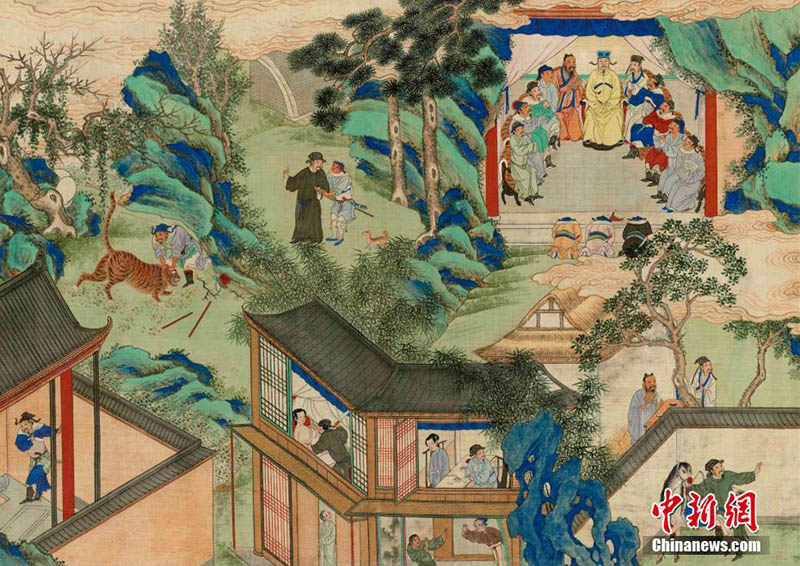 中新網
Chinanews.com